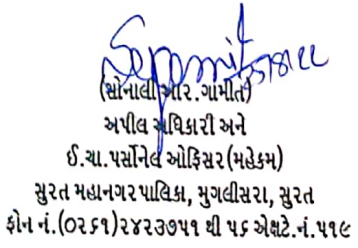 (સોનાલી આર.ગામીત)
અપીલ અધિકારી અને
ઈ.ચા.પર્સોનેલ ઓફિસર(મહેકમ)
સુરત મહાનગરપાલિકા, મુગલીસરા, સુરત
ફોન નં.(૦૨૬૧)૨૪૨૩૭૫૧ થી ૫૬ એક્ષટે.નં.૫૧૯